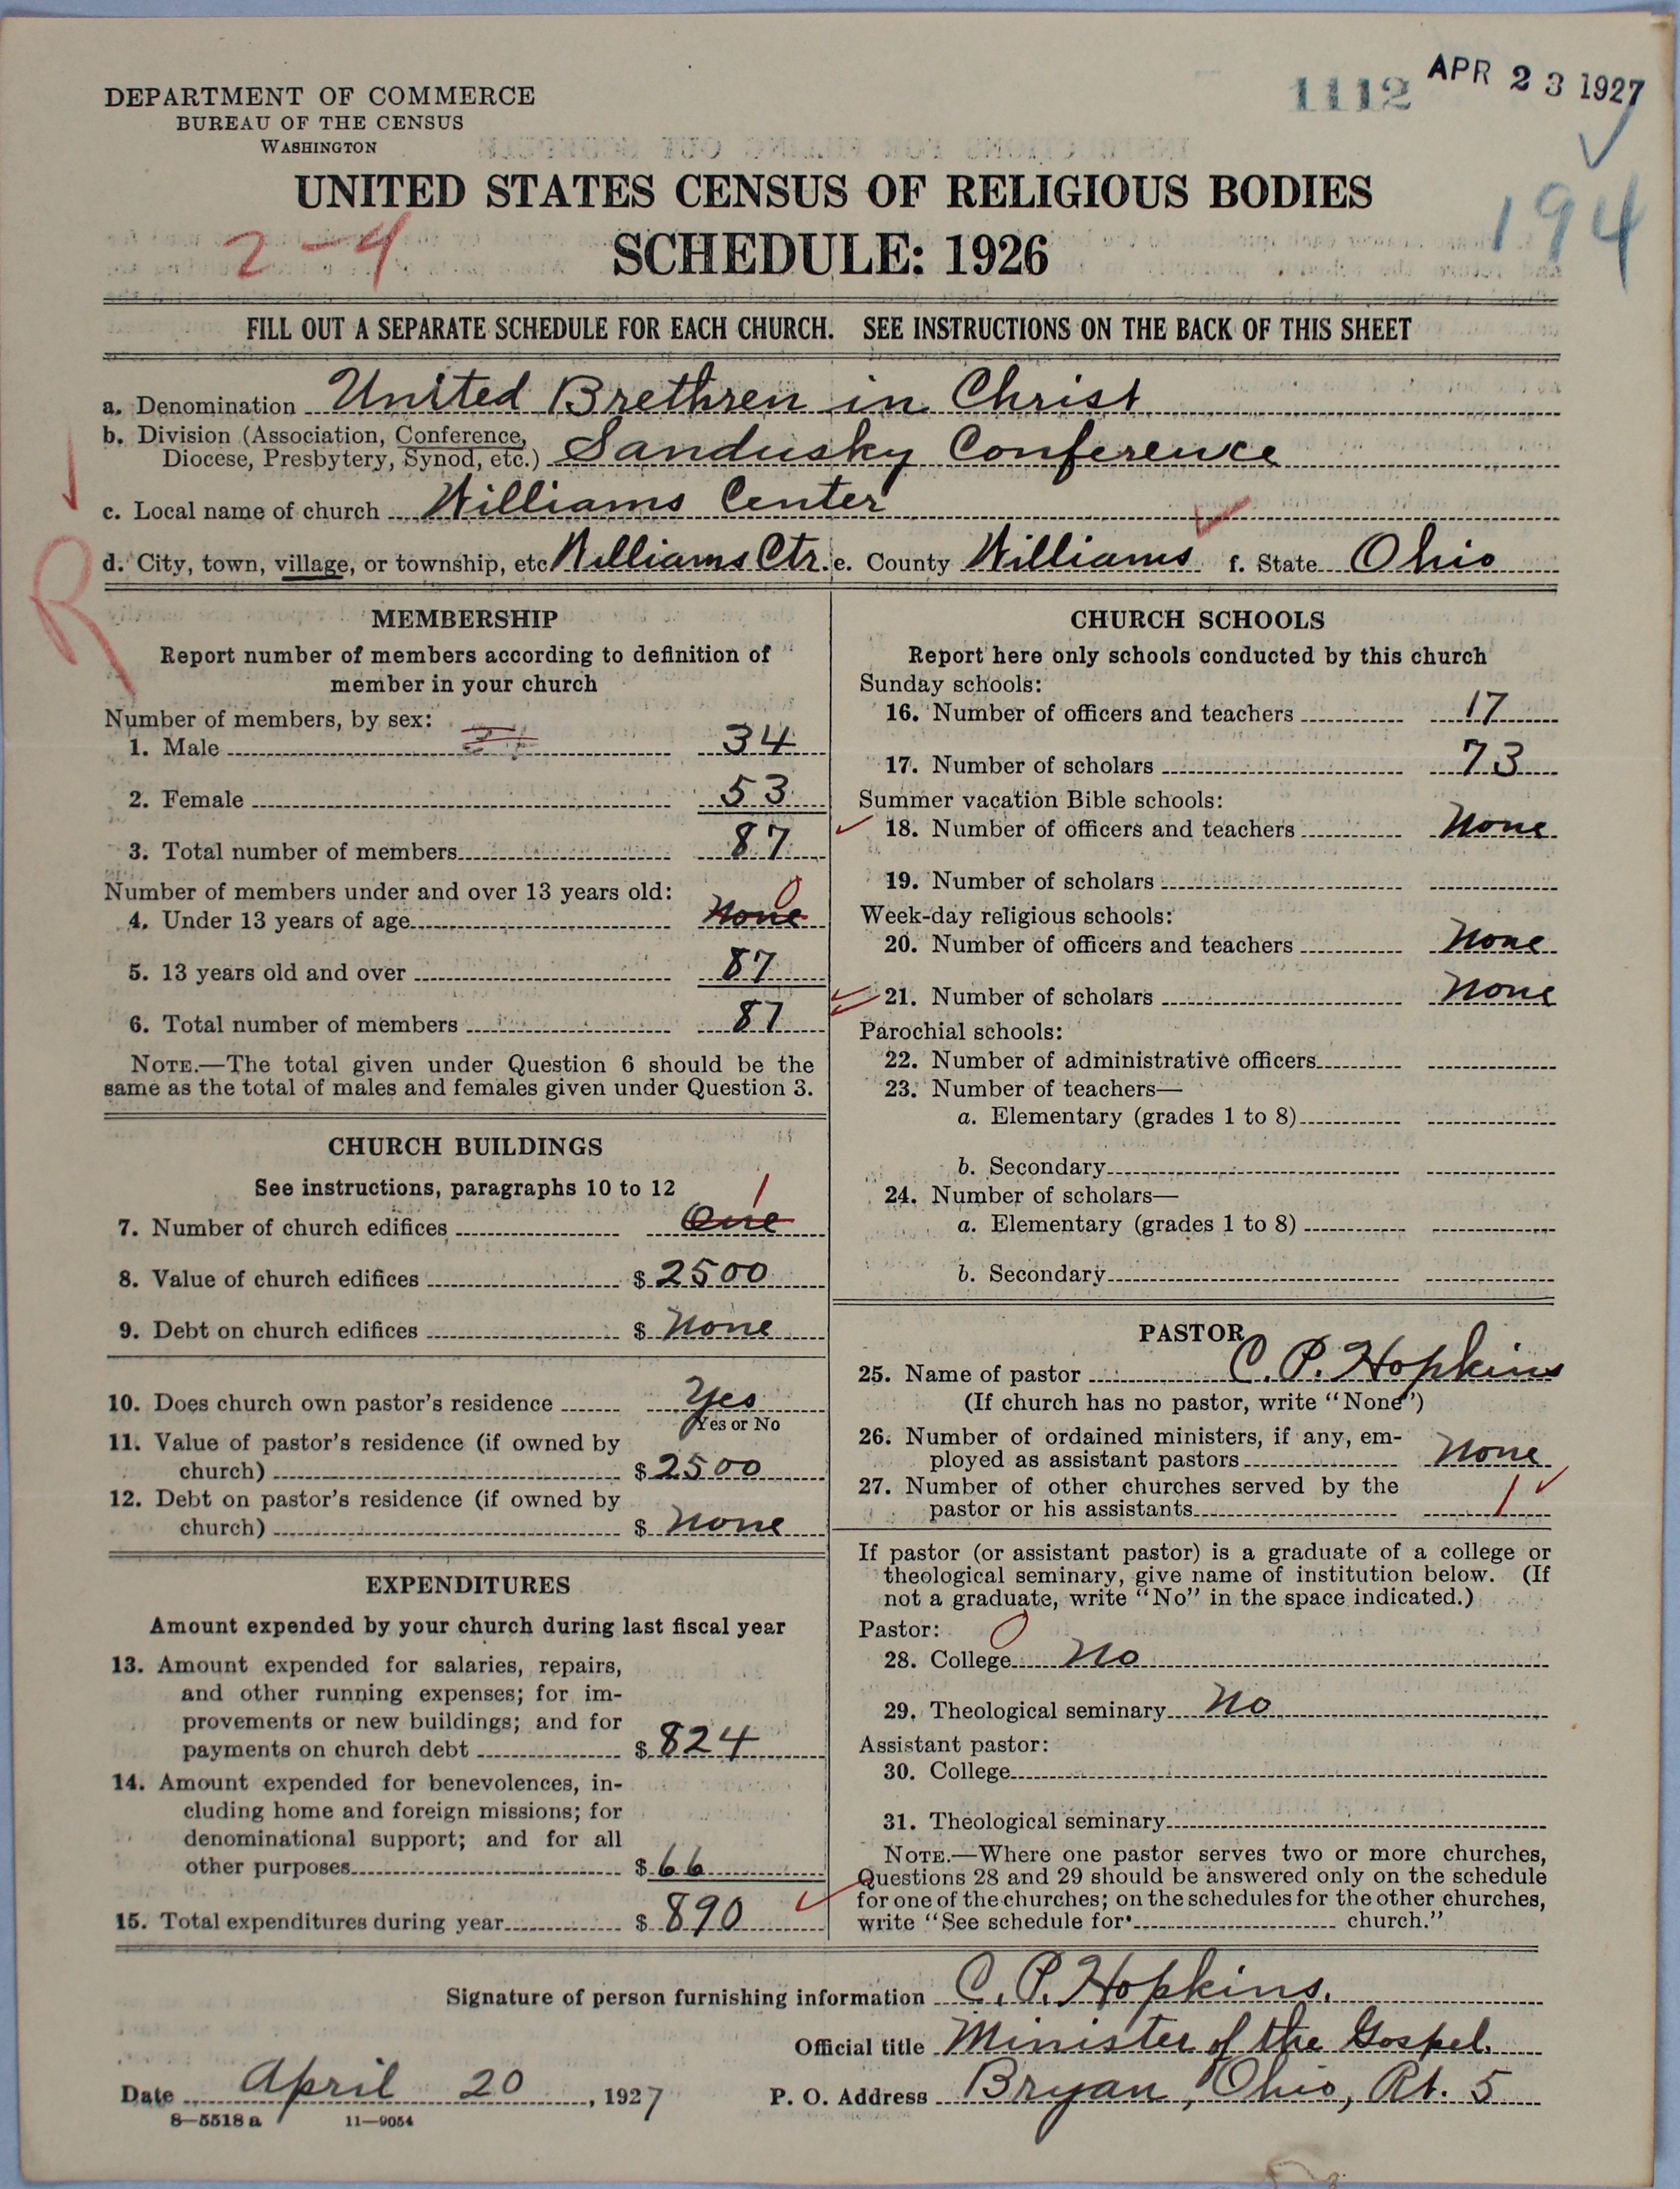 DEPARTMENT OF COMMERCE
BUREAU OF THE CENSUS
WASHINGTON
1112 APR 23 1927
UNITED STATES CENSUS OF RELIGIOUS BODIES
194
2-4
SCHEDULE: 1926
FILL OUT A SEPARATE SCHEDULE FOR EACH CHURCH. SEE INSTRUCTIONS ON THE BACK OF THIS SHEET
a. Denomination United Brethren in Christ
b. Division (Association, Conference,
Diocese, Presbytery, Synod, etc.) Sandusky Conference
c. Local name of church Williams Center
d. City, town, village, or township, etc Williams Ctr. e. County Williams f. State Ohio
R
MEMBERSHIP
Report number of members according to definition of
member in your church
Number of members, by sex:
1. Male 34
2. Female 53
3. Total number of members 87
Number of members under and over 13 years old:
0
4. Under 13 years of age None
5. 13 years old and over 87
6. Total number of members 87
NOTE.—The total given under Question 6 should be the
same as the total of males and females given under Question 3.
CHURCH BUILDINGS
See instructions, paragraphs 10 to 12
1
7. Number of church edifices One
8. Value of church edifices $ 2500
9. Debt on church edifices $ None
10. Does church own pastor's residence Yes
Yes or No
11. Value of pastor's residence (if owned by
church) $ 2500
12. Debt on pastor's residence (if owned by
church) $ None
EXPENDITURES
Amount expended by your church during last fiscal year
13. Amount expended for salaries, repairs,
and other running expenses; for im-
provements or new buildings; and for
payments on church debt $ 824
14. Amount expended for benevolences, in-
cluding home and foreign missions; for
denominational support; and for all
other purposes $ 66
15. Total expenditures during year $ 890
CHURCH SCHOOLS
Report here only schools conducted by this church
Sunday schools:
16. Number of officers and teachers 17
17. Number of scholars 73
Summer vacation Bible schools:
18. Number of officers and teachers None
19. Number of scholars
Week-day religious schools:
20. Number of officers and teachers None
21. Number of scholars None
Parochial schools:
22. Number of administrative officers
23. Number of teachers—
a. Elementary (grades 1 to 8)
b. Secondary
24. Number of scholars—
a. Elementary (grades 1 to 8)
b. Secondary
PASTOR
25. Name of pastor C. P. Hopkins
(If church has no pastor, write "None")
26. Number of ordained ministers, if any, em-
ployed as assistant pastors None
27. Number of other churches served by the
pastor or his assistants 1
If pastor (or assistant pastor) is a graduate of a college or
theological seminary, give name of institution below. (If
not a graduate, write "No" in the space indicated.)
Pastor: 0
28. College No
29. Theological seminary No
Assistant pastor:
30. College
31. Theological seminary
NOTE.—Where one pastor serves two or more churches,
Questions 28 and 29 should be answered only on the schedule
for one of the churches; on the schedules for the other churches,
write "See schedule for church."
Signature of person furnishing information C. P. Hopkins.
Official title Minister of the Gospel.
Date April 20, 1927 P. O. Address Bryan, Ohio, Rt. 5
8—5518 a 11—9054